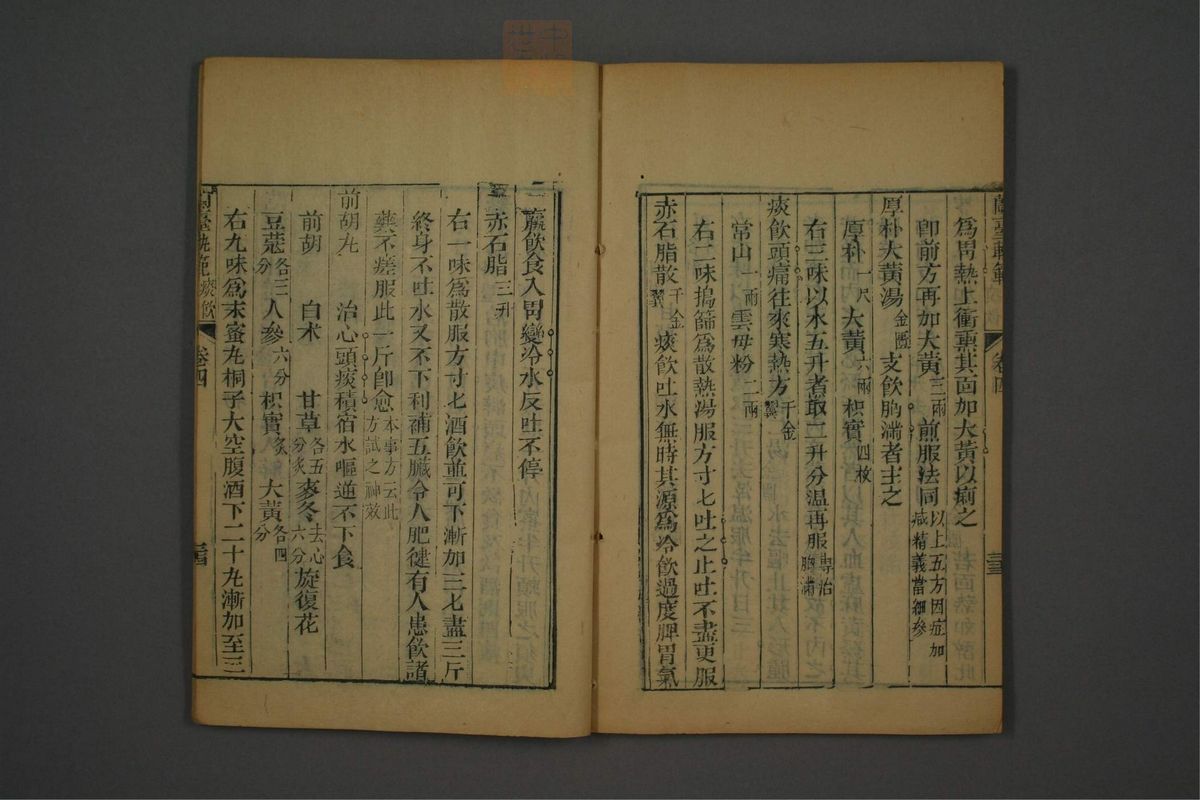 爲胃熱上衝熏其面加大黃以痢之
卽前方再加大黃三兩煎服法同以上五方因症加減精義當細參
厚朴大黃湯金匱支飲胸滿者主之
厚朴一尺大黃六兩枳實四枚
右三味以水五升煮取二升分溫再服專治胸滿
痰飲頭痛往來寒熱方千金翼
常山一兩雲母粉二兩
右二味搗篩爲散熱湯服方寸匕吐之止吐不盡更服
赤石脂散千金翼痰飲吐水無時其源爲冷飲過度脾胃氣
蘭臺軌範
卷四
三三
羸飲食入胃變冷水反吐不停
赤石脂三升
右一味爲散服方寸匕酒飲並可下漸加三匕盡三斤
終身不吐水又不下利補五臟令人肥健有人患飲諸
藥不瘥服此一斤卽愈本事方云此方試之神效
前胡丸治心頭痰積宿水嘔逆不下食
前胡 白术 甘草各五分炙麥冬去心六分旋復花
豆蔻各三分人參六分枳實炙大黃各四分
右九味爲末蜜丸桐子大空腹酒下二十九漸加至三
蘭臺軌範
痰飲
卷四
三四